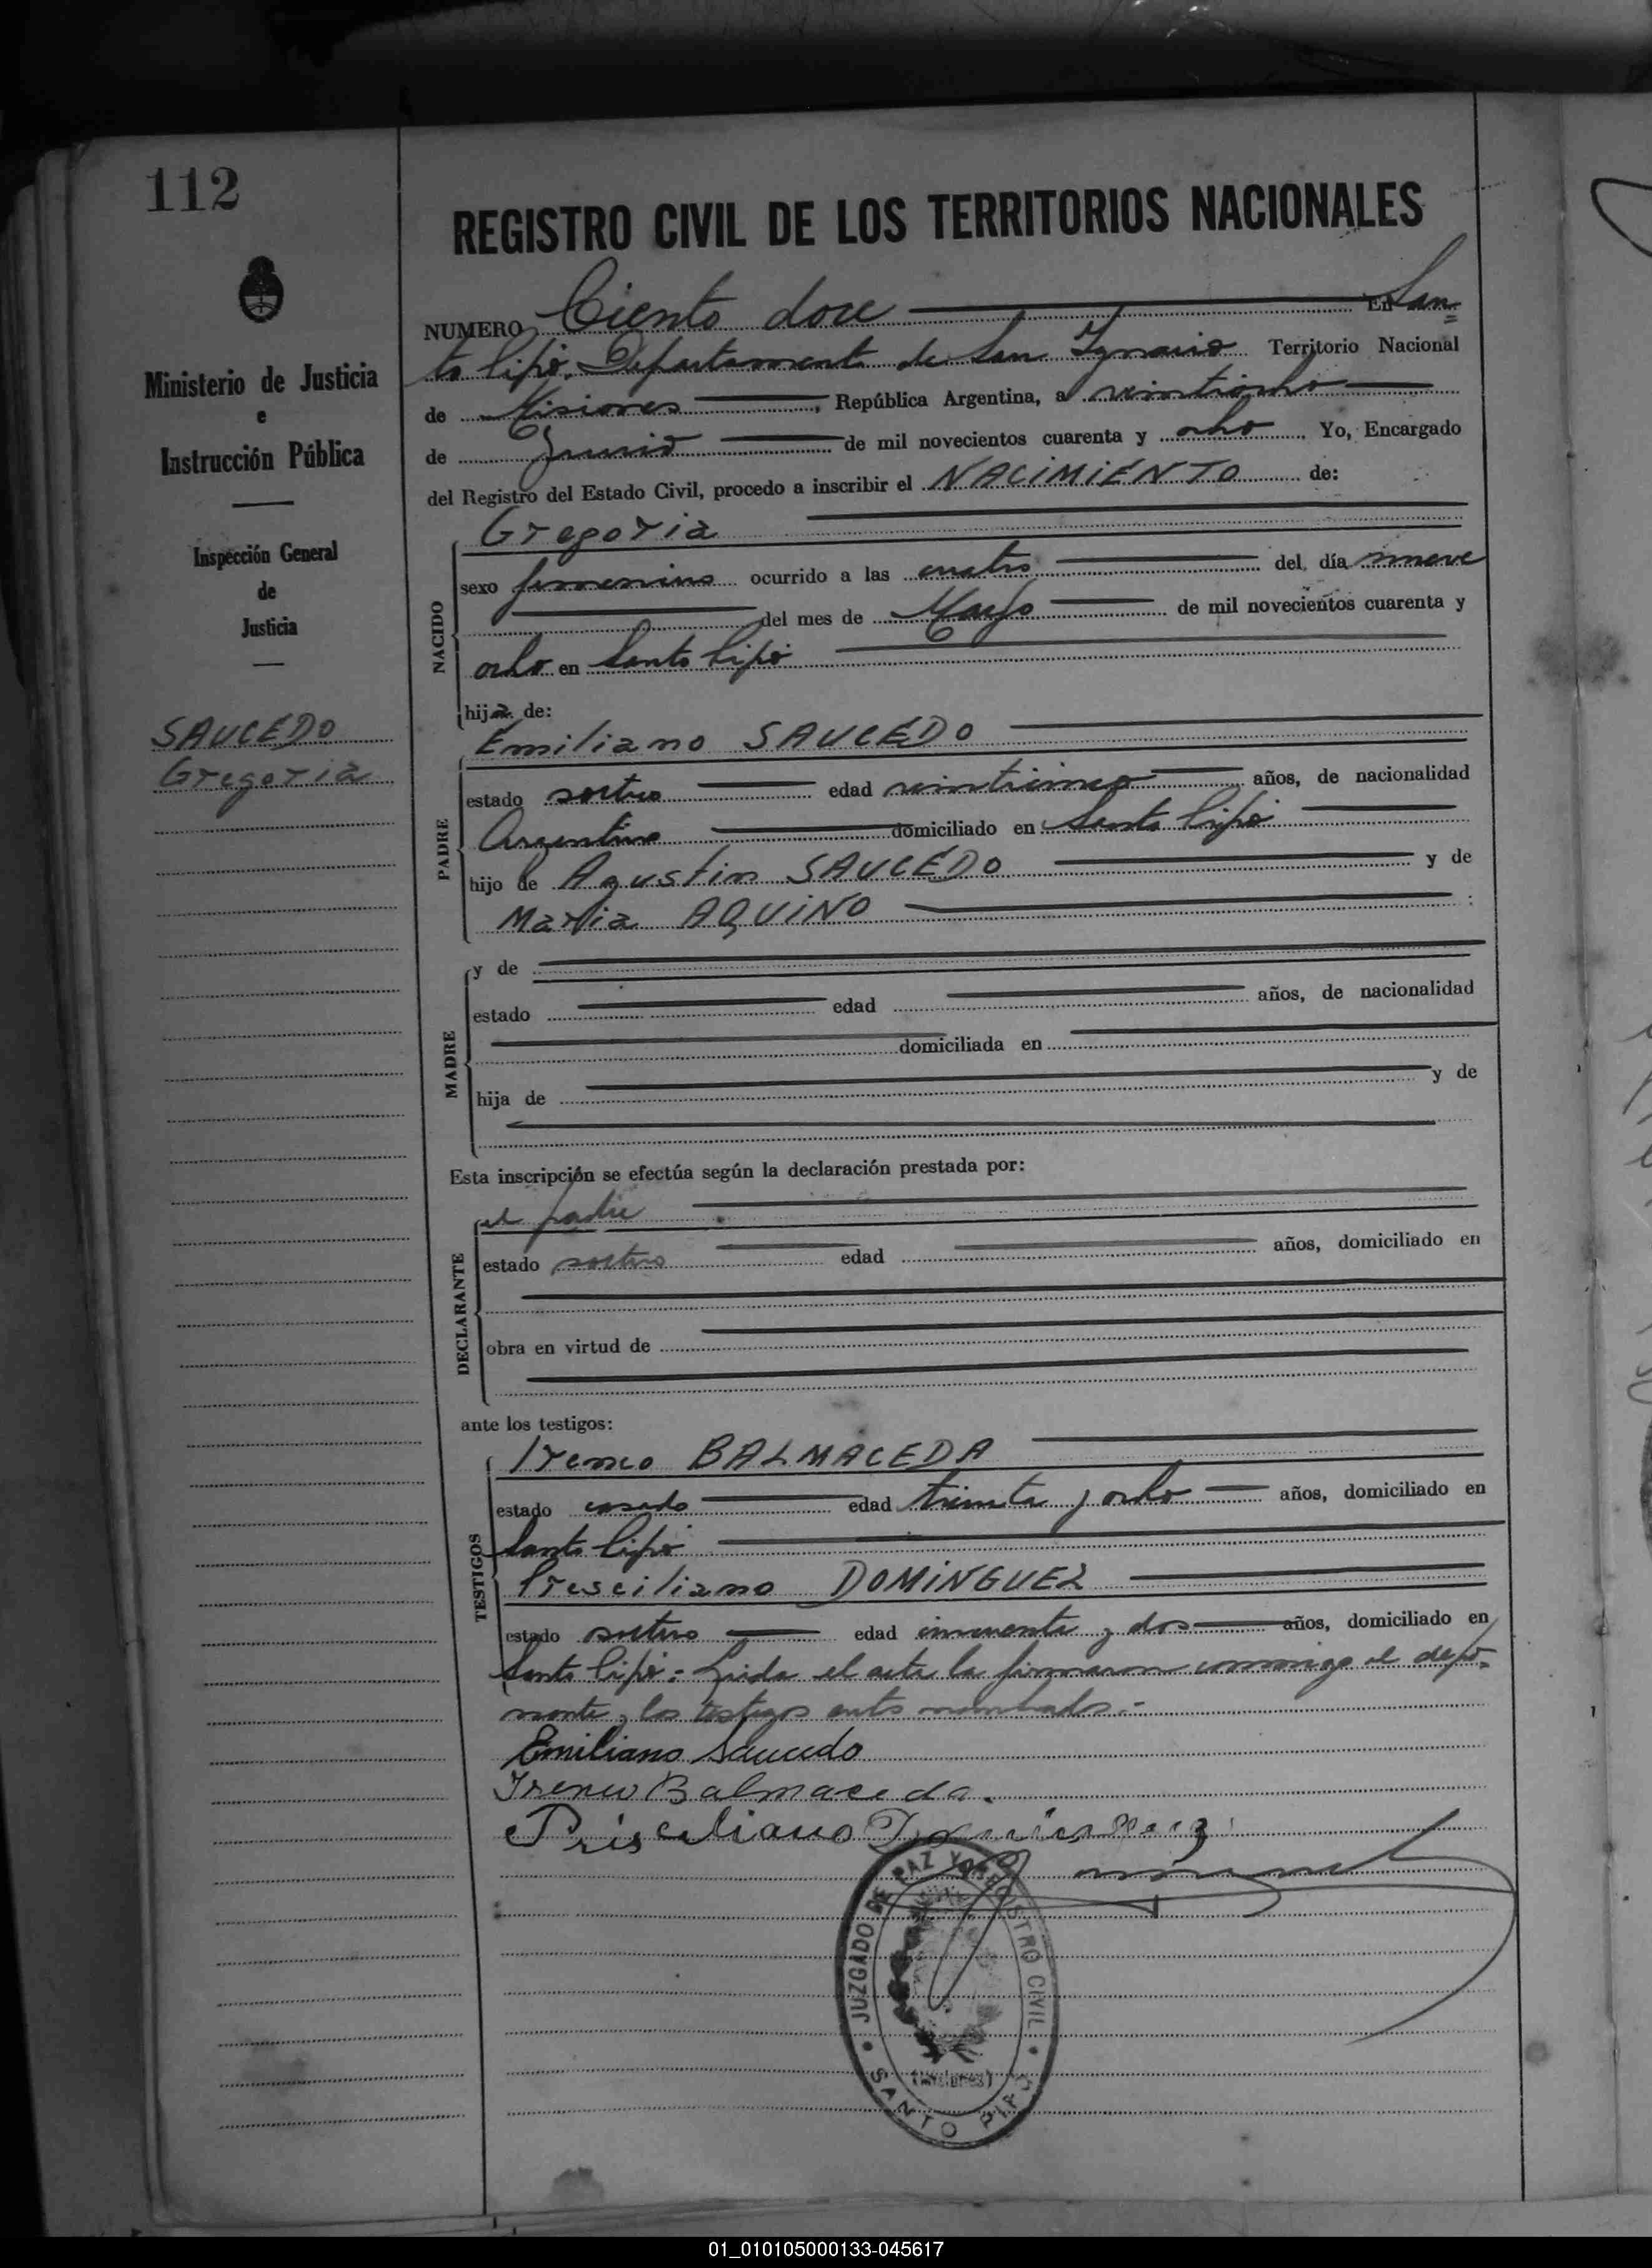 112
REGISTRO CIVIL DE LOS TERRITORIOS NACIONALES
Ministerio de Justicia
e
Instrucción Pública
Inspección General
de
Justicia
SAUCEDO
Gregoria
NUMERO Ciento doce En San=
to Pipó, Departamento de San Ignacio Territorio Nacional
de Misiones, República Argentina, a veintiocho
de Junio de mil novecientos cuarenta y ocho, Yo, Encargado
del Registro del Estado Civil, procedo a inscribir el NACIMIENTO de:
NACIDO
Gregoria
sexo femenino ocurrido a las cuatro del día nueve
del mes de Mayo de mil novecientos cuarenta y
ocho en Santo Pipó
hija de:
PADRE
Emiliano SAUCEDO
estado soltero edad veinticinco años, de nacionalidad
Argentino domiciliado en Santo Pipó
hijo de Agustin SAUCEDO y de
Maria AQUINO
MADRE
y de
estado edad años, de nacionalidad
domiciliada en
hija de y de
Esta inscripción se efectúa según la declaración prestada por:
DECLARANTE
el padre
estado soltero edad años, domiciliado en
obra en virtud de
ante los testigos:
TESTIGOS
Ireneo BALMACEDA
estado casado edad treinta y ocho años, domiciliado en
Santo Pipó
Presciliano DOMINGUEZ
estado soltero edad cincuenta y dos años, domiciliado en
Santo Pipó.= Leida el acta la firmaron conmigo el depo-
nente y los testigos antes nombrados.-
Emiliano Saucedo
Ireneo Balmaceda.
Prisciliano Dominguez
JUZGADO DE PAZ Y REGISTRO CIVIL
(Misiones)
SANTO PIPO
01_010105000133-045617